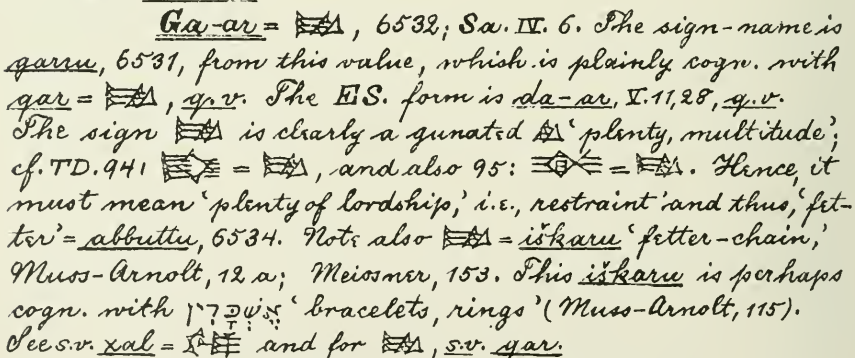 Ga-ar = , 6532; Sa. IV. 6. The sign-name is
garru, 6531, from this value, whish is plainly cogn. with
qar = , q.v. The ES. form is da-ar, V. 11, 28, q.v.
The sign is clearly a gunated 'plenty, multitude';
cf. TD. 941 = , and also 95: = . Hence, it
must mean 'plenty of lordship,' i.e., restraint' and thus, 'fet-
ter' = abbuttu, 6534. Note also = iškaru 'fetter-chain,'
Muss-Arnolt, 12 a; Meissner, 153. This iškaru is perhaps
cogn. with 'bracelets, rings' (Muss-Arnolt, 115).
See s.v. xal = and for , s.v. qar.